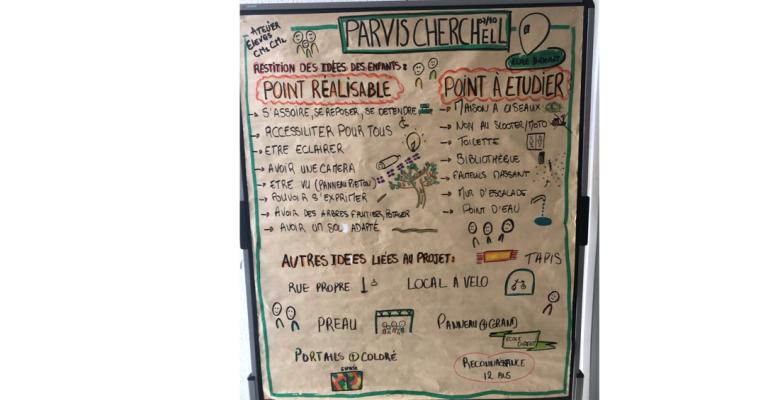 ATELIER
ELEVES
CM1 CM2
PARVIS CHERCHELL
07/10
RESTITION DES IDÉES DES ENFANTS:
POINT RÉALISABLE
→ S'ASSOIRE, SE REPOSER, SE DETENDRE
→ ACCESSILITER POUR TOUS
→ ETRE ECLAIRER
→ AVOIR UNE CAMERA
→ ETRE VU (PANNEAU PIETON)
→ POUVOIR S'EXPRIMER
→ AVOIR DES ARBRES FRUITIERS, POTAGER
→ AVOIR UN SOL ADAPTÉ
POINT À ETUDIER
→ MAISON A OISEAUX
→ NON AU SCOOTER/MOTO
→ TOILETTE
→ BIBLIOTHÈQUE
→ FAUTEUILS MASSANT
→ MUR D'ESCALADE
→ POINT D'EAU
AUTRES IDEES LIÉES AU PROJET:
TAPIS
RUE PROPRE
LOCAL A VELO
PREAU
PANNEAU (+ GRAND)
ECOLE
PORTAILS + COLORÉ
RECONNAISSANCE
12 ANS